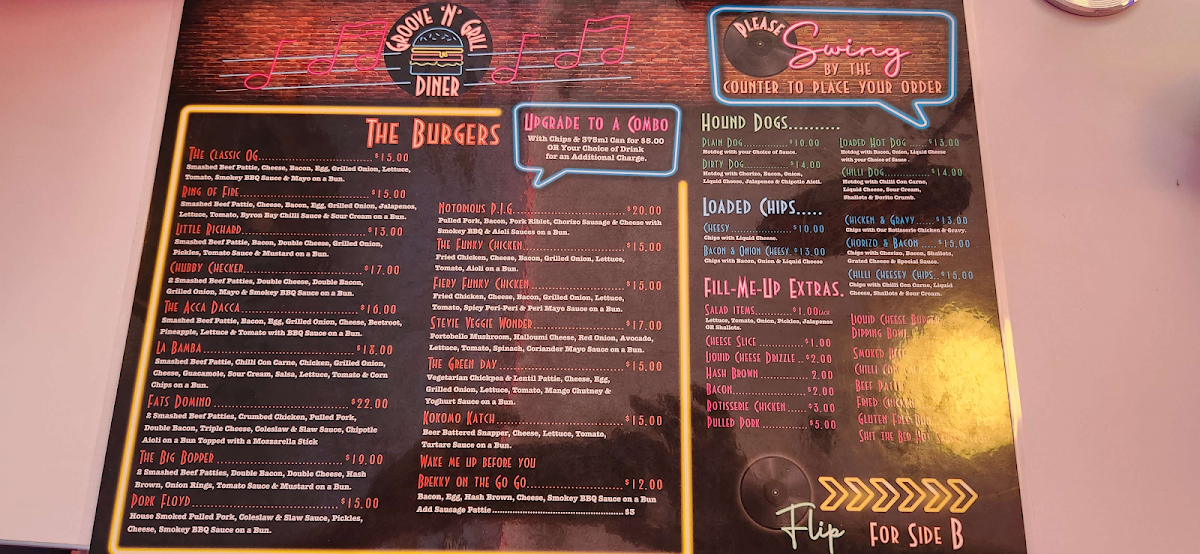 GROOVE 'N' GRILL
DINER
PLEASE
Swing
BY THE
COUNTER TO PLACE YOUR ORDER
THE BURGERS
THE CLASSIC OG $15.00
Smashed Beef Pattie, Cheese, Bacon, Egg, Grilled Onion, Lettuce,
Tomato, Smokey BBQ Sauce & Mayo on a Bun.
RING OF FIRE $15.00
Smashed Beef Pattie, Cheese, Bacon, Egg, Grilled Onion, Jalapenos,
Lettuce, Tomato, Byron Bay Chilli Sauce & Sour Cream on a Bun.
LITTLE RICHARD $13.00
Smashed Beef Pattie, Bacon, Double Cheese, Grilled Onion,
Pickles, Tomato Sauce & Mustard on a Bun.
CHUBBY CHECKER $17.00
2 Smashed Beef Patties, Double Cheese, Double Bacon,
Grilled Onion, Mayo & Smokey BBQ Sauce on a Bun.
THE ACCA DACCA $16.00
Smashed Beef Pattie, Bacon, Egg, Grilled Onion, Cheese, Beetroot,
Pineapple, Lettuce & Tomato with BBQ Sauce on a Bun.
LA BAMBA $18.00
Smashed Beef Pattie, Chilli Con Carne, Chicken, Grilled Onion,
Cheese, Guacamole, Sour Cream, Salsa, Lettuce, Tomato & Corn
Chips on a Bun.
FATS DOMINO $22.00
2 Smashed Beef Patties, Crumbed Chicken, Pulled Pork,
Double Bacon, Triple Cheese, Coleslaw & Slaw Sauce, Chipotle
Aioli on a Bun Topped with a Mozzarella Stick
THE BIG BOPPER $19.00
2 Smashed Beef Patties, Double Bacon, Double Cheese, Hash
Brown, Onion Rings, Tomato Sauce & Mustard on a Bun.
PORK FLOYD $15.00
House Smoked Pulled Pork, Coleslaw & Slaw Sauce, Pickles,
Cheese, Smokey BBQ Sauce on a Bun.
UPGRADE TO A COMBO
With Chips & 375ml Can for $5.00
OR Your Choice of Drink
for an Additional Charge.
NOTORIOUS P.I.G. $20.00
Pulled Pork, Bacon, Pork Riblet, Chorizo Sausage & Cheese with
Smokey BBQ & Aioli Sauces on a Bun.
THE FUNKY CHICKEN $15.00
Fried Chicken, Cheese, Bacon, Grilled Onion, Lettuce,
Tomato, Aioli on a Bun.
FIERY FUNKY CHICKEN $15.00
Fried Chicken, Cheese, Bacon, Grilled Onion, Lettuce,
Tomato, Spicy Peri-Peri & Peri Mayo Sauce on a Bun.
STEVIE VEGGIE WONDER $17.00
Portobello Mushroom, Halloumi Cheese, Red Onion, Avocado,
Lettuce, Tomato, Spinach, Coriander Mayo Sauce on a Bun.
THE GREEN DAY $15.00
Vegetarian Chickpea & Lentil Pattie, Cheese, Egg,
Grilled Onion, Lettuce, Tomato, Mango Chutney &
Yoghurt Sauce on a Bun.
KOKOMO KATCH $15.00
Beer Battered Snapper, Cheese, Lettuce, Tomato,
Tartare Sauce on a Bun.
WAKE ME UP BEFORE YOU
BREKKY ON THE GO GO $12.00
Bacon, Egg, Hash Brown, Cheese, Smokey BBQ Sauce on a Bun
Add Sausage Pattie $3
HOUND DOGS
PLAIN DOG $10.00
Hotdog with your Choice of Sauce.
DIRTY DOG $14.00
Hotdog with Chorizo, Bacon, Onion,
Liquid Cheese, Jalapenos & Chipotle Aioli.
LOADED HOT DOG $13.00
Hotdog with Bacon, Onion, Liquid Cheese
with your Choice of Sauce.
CHILLI DOG $14.00
Hotdog with Chilli Con Carne,
Liquid Cheese, Sour Cream,
Shallots & Dorito Crumb.
LOADED CHIPS
CHEESY $10.00
Chips with Liquid Cheese.
BACON & ONION CHEESY $13.00
Chips with Bacon, Onion & Liquid Cheese
CHICKEN & GRAVY $13.00
Chips with Our Rotisserie Chicken & Gravy.
CHORIZO & BACON $15.00
Chips with Chorizo, Bacon, Shallots,
Grated Cheese & Special Sauce.
CHILLI CHEESEY CHIPS $15.00
Chips with Chilli Con Carne, Liquid
Cheese, Shallots & Sour Cream.
FILL-ME-UP EXTRAS.
SALAD ITEMS $1.00 EACH
Lettuce, Tomato, Onion, Pickles, Jalapenos
OR Shallots.
CHEESE SLICE $1.00
LIQUID CHEESE DRIZZLE $2.00
HASH BROWN 2.00
BACON $2.00
ROTISSERIE CHICKEN $3.00
PULLED PORK $5.00
LIQUID CHEESE BURGER
DIPPING BOWL
SMOKED
CHILLI CON
BEEF PATTIE
FRIED CHICKEN
GLUTEN FREE BUN
SHIT THE BED HOT
Flip FOR SIDE B